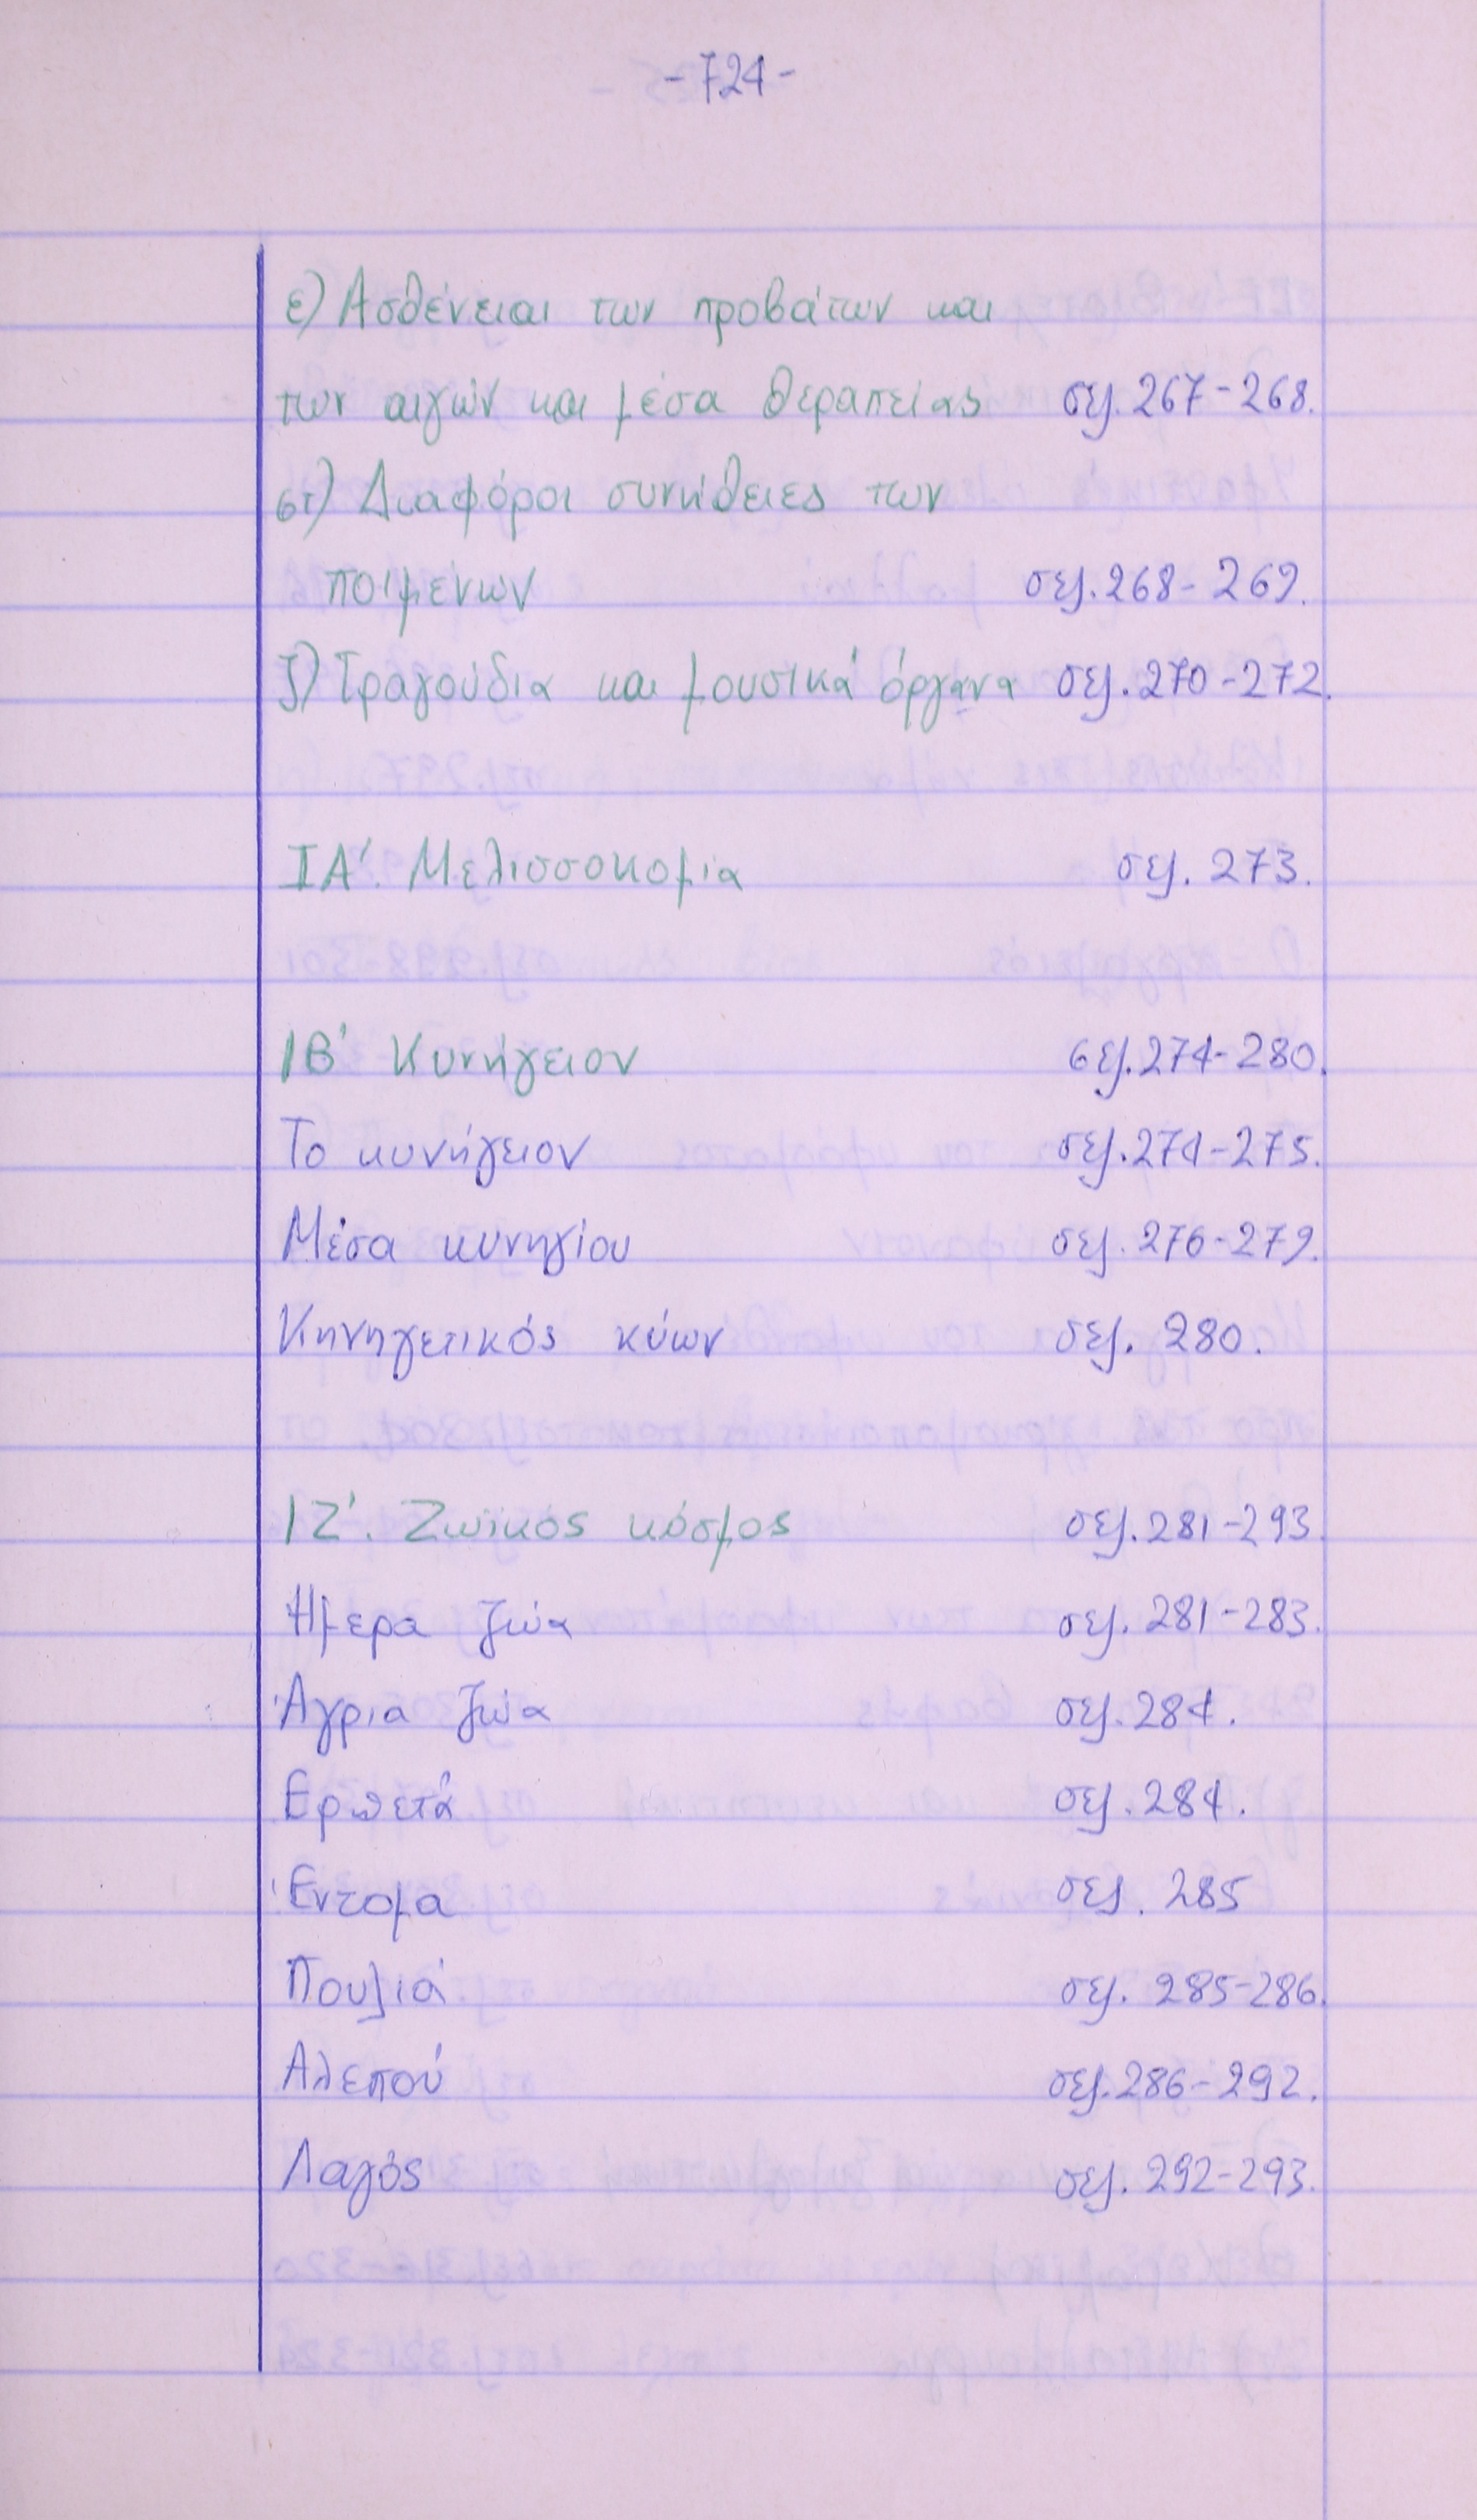 -724-
ε) Ασθένειαι των προβάτων και
των αιγών και μέσα θεραπείας σελ. 267-268.
στ) Διαφόροι συνήθειες των
ποιμένων σελ. 268-269.
ζ) Τραγούδια και μουσικά όργανα σελ. 270-272.
ΙΑ'. Μελισσοκομία σελ. 273.
ΙΒ' Κυνήγειον σελ. 274-280.
Το κυνήγειον σελ. 274-275.
Μέσα κυνηγίου σελ. 276-279.
Κηνηγετικός κύων σελ. 280.
ΙΖ'. Ζωϊκός κόσμος σελ. 281-293
Ήμερα ζώα σελ. 281-283.
Άγρια ζώα σελ. 284.
Ερπετά σελ. 284.
Έντομα σελ. 285
Πουλιά σελ. 285-286.
Αλεπού σελ. 286-292.
Λαγός σελ. 292-293.